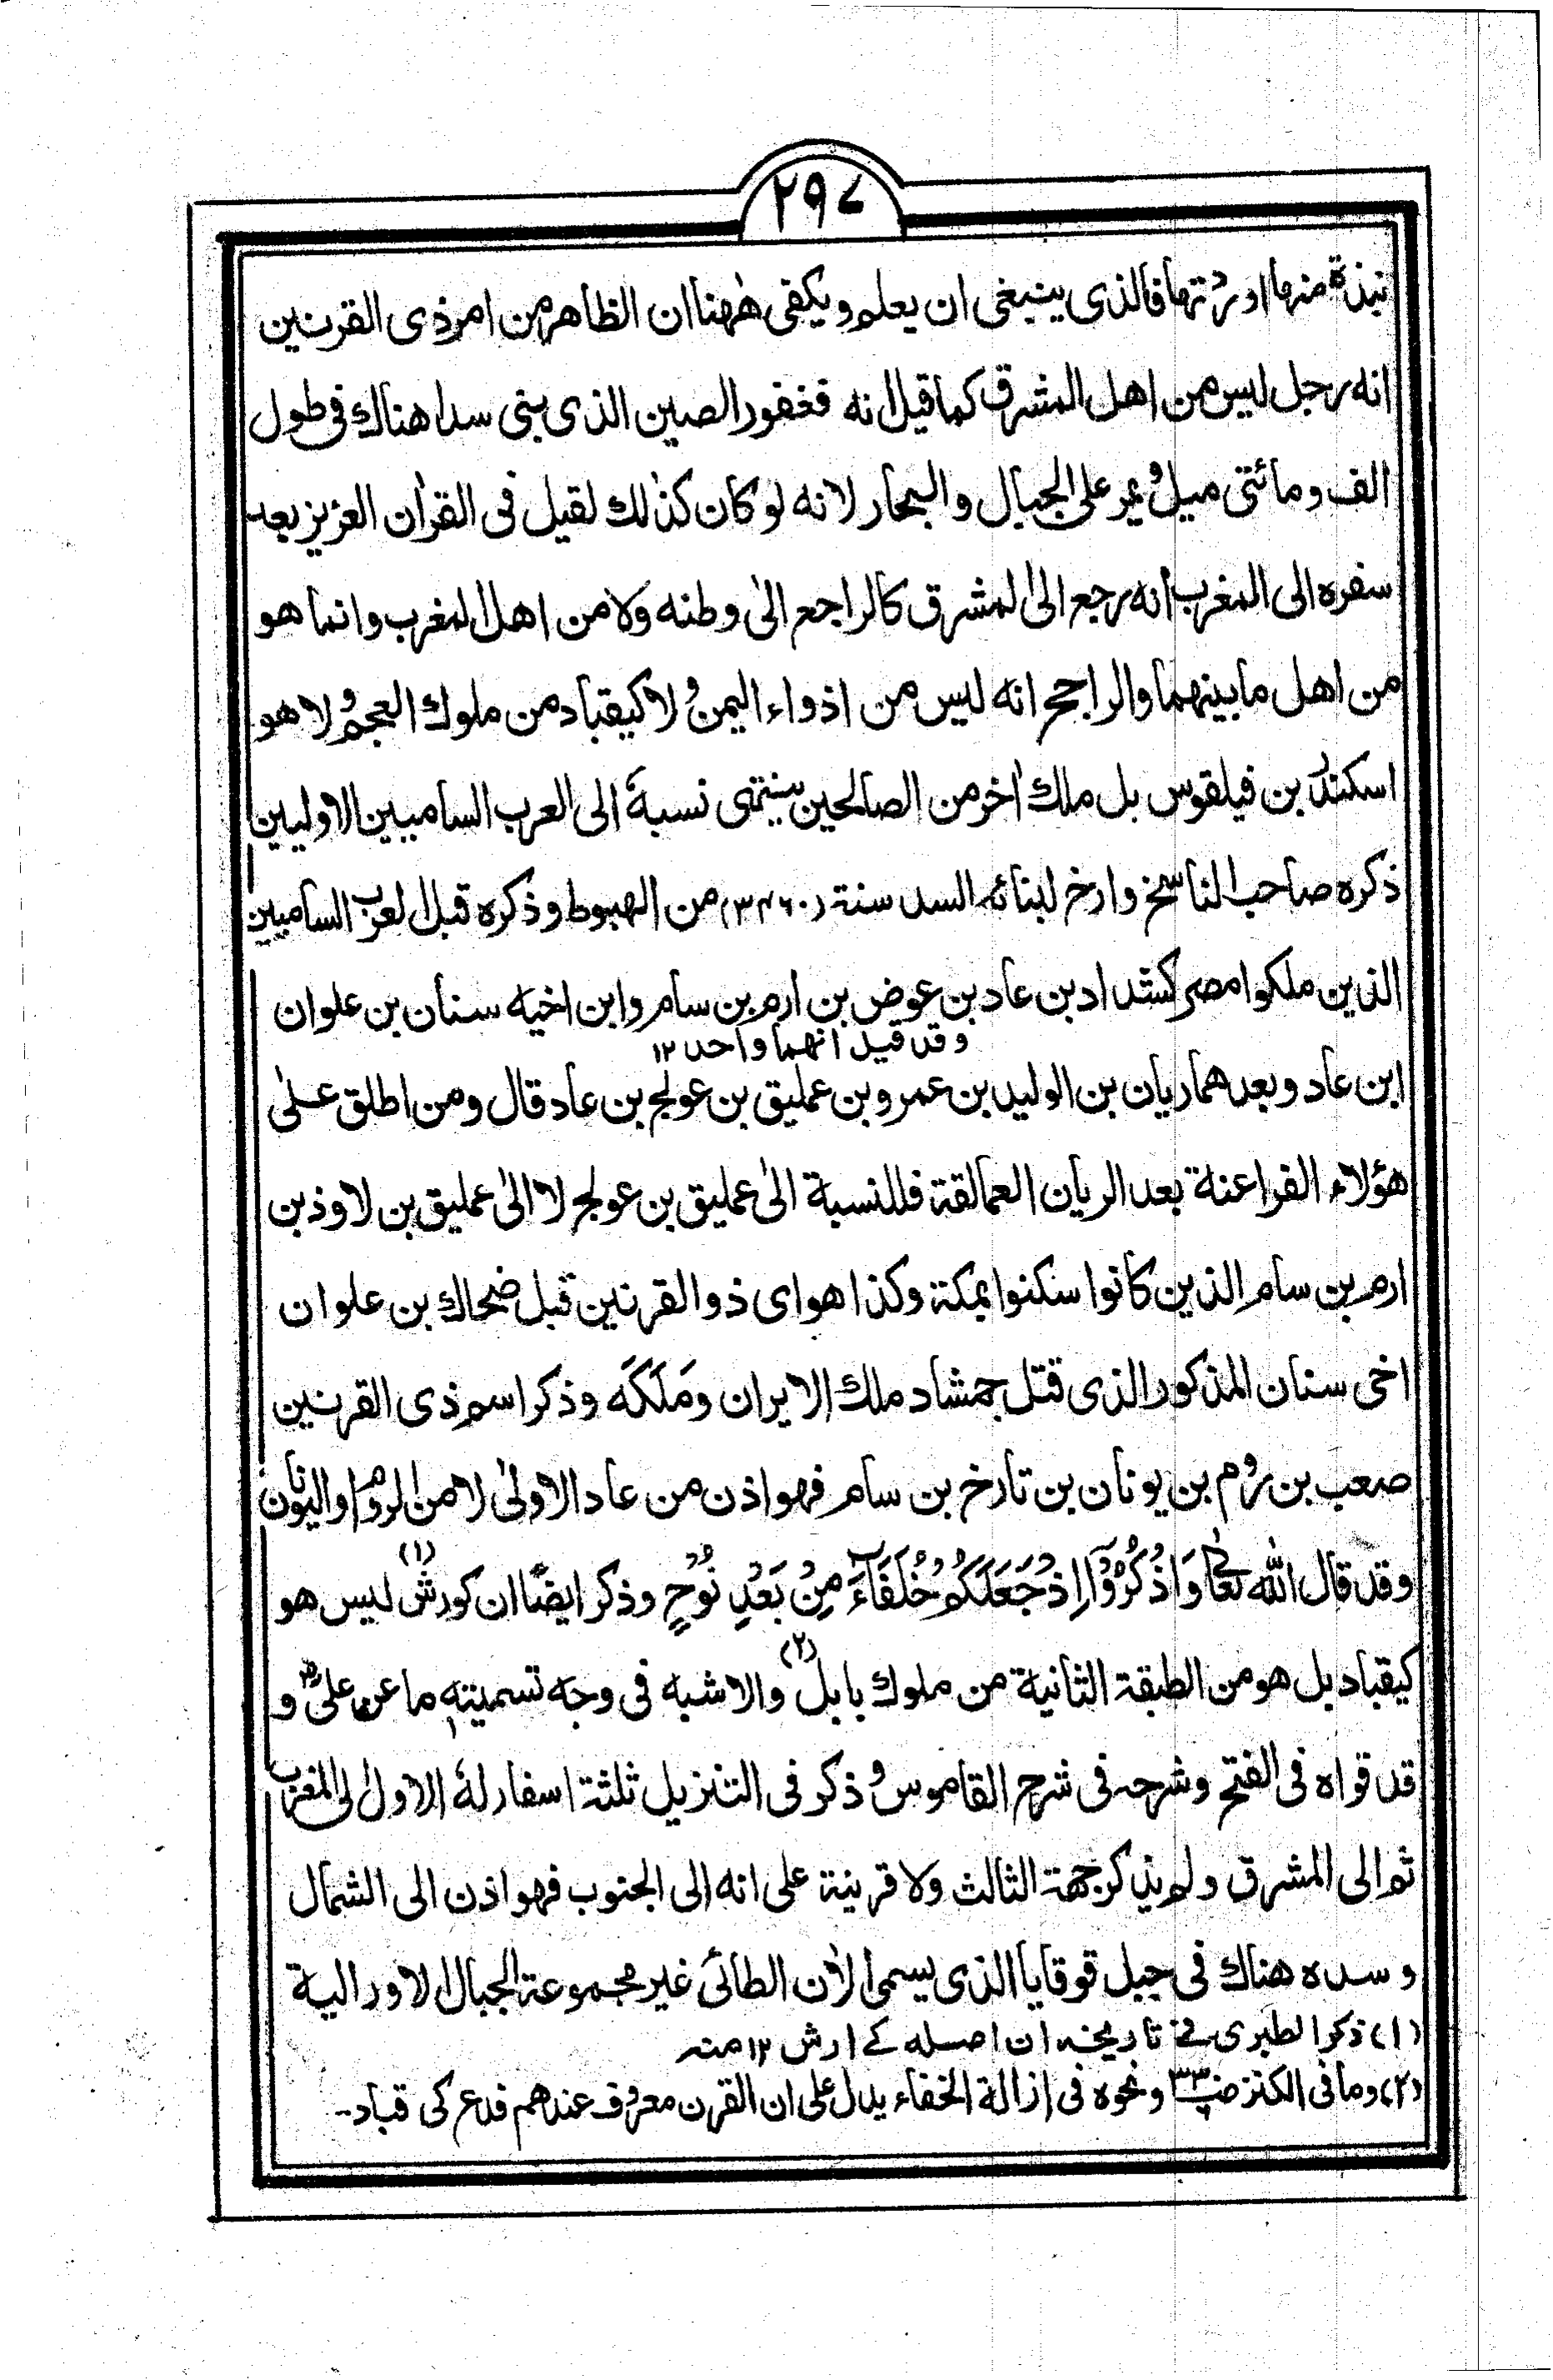 ۲۹۷
نبذة منها اوردتها فالذى ينبغى ان يعلم ويكفى هٰهنا ان الظاهر من امر ذى القرنين
انه رجل ليس من اهل المشرق كما قيل انه فغفور الصين الذى بنى سدا هناك فى طول
الف ومائتى ميل ويمر على الجبال والبحار لانه لو كان كذٰلك لقيل فى القرآن العزيز بعد
سفره الى المغرب انه رجع الى المشرق كالراجع الىٰ وطنه ولا من اهل المغرب وانما هو
من اهل ما بينهما والراجح انه ليس من اذواء اليمن ولا كيقباد من ملوك العجم ولا هو
اسكندر بن فيلقوس بل ملك اٰخر من الصالحين ينتهى نسبهٗ الى العرب الساميين الاوليين
ذكره صاحب الناسخ وارخ لبنائه السد سنة (۳۴۶۰) من الهبوط وذكره قبل العرب الساميين
الذين ملكوا مصر كشداد بن عاد بن عوض بن ارم بن سام وابن اخيه سنان بن علوان
وقد قيل انهما واحد ۱۲
ابن عاد وبعدهما ريان بن الوليد بن عمرو بن عمليق بن عولج بن عاد قال ومن اطلق علىٰ
هؤلاء الفراعنة بعد الريان العمالقة فللنسبة الىٰ عمليق بن عولج لا الىٰ عمليق بن لاوذ بن
ارم بن سام الذين كانوا سكنوا بمكة وكذا هو اى ذو القرنين قبل ضحاك بن علوان
اخى سنان المذكور الذى قتل جمشاد ملك الايران ومَلَكَه وذكر اسم ذى القرنين
صعب بن روم بن يونان بن تارخ بن سام فهو اذن من عاد الاولىٰ لا من الروم او اليونان
وقد قال الله تعالىٰ وَاذْكُرُوْٓا اِذْ جَعَلَكُمْ خُلَفَآءَ مِنْ بَعْدِ نُوْحٍ وذكر ايضًا ان كورش (۱) ليس هو
كيقباد بل هو من الطبقة الثانية من ملوك بابل (۲) والاشبه فى وجه تسميته ما عن على و
قد قواه فى الفتح وشرحه فى شرح القاموس وذكر فى التنزيل ثلثة اسفار لهٗ الاول الى المغرب
ثم الى المشرق ولم يذكر جهة الثالث ولا قرينة على انه الى الجنوب فهو اذن الى الشمال
وسده هناك فى جبل قوقايا الذى يسمى الاٰن الطائى غير مجموعة الجبال الاورالية
(۱) ذكر الطبرى فى تاريخه ان اصله كے ارش ۱۲ منه
(۲) وما فى الكنز ونحوه فى ازالة الخفاء يدل على ان القرن معروف عندهم فدع كى قباد۔